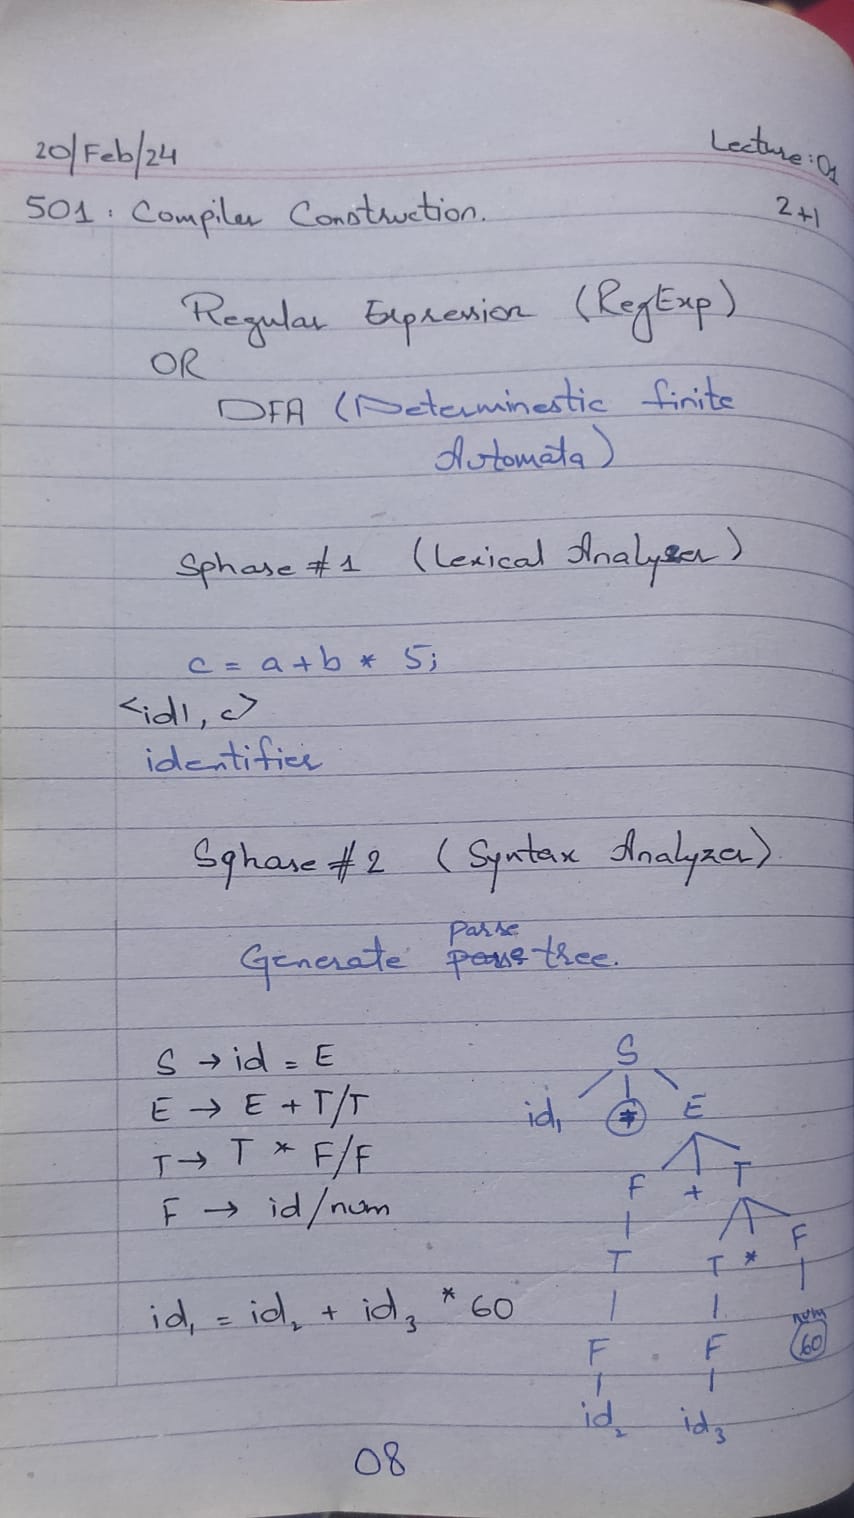 20/Feb/24
Lecture:01
501: Compiler Construction.
2+1
Regular Expression (RegExp)
OR
DFA (Determinestic finite
Automata)
Sphase #1 (Lexical Analyzer)
c = a+b * 5;
<id1, c>
identifier
Sphase #2 (Syntax Analyzer)
Parse
Generate tree.
S → id = E
E → E + T/T
T → T * F/F
F → id/num
id₁ = id₂ + id₃ * 60
S
id₁ E
F + T
T T * F
num
F F 60
id₂ id₃
08